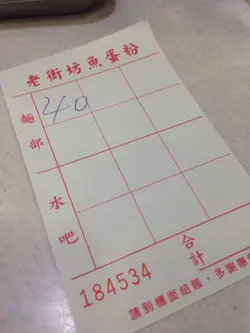 老街坊魚蛋粉
麵部
40
水吧
合計
184534
請到櫃面結賬，多謝